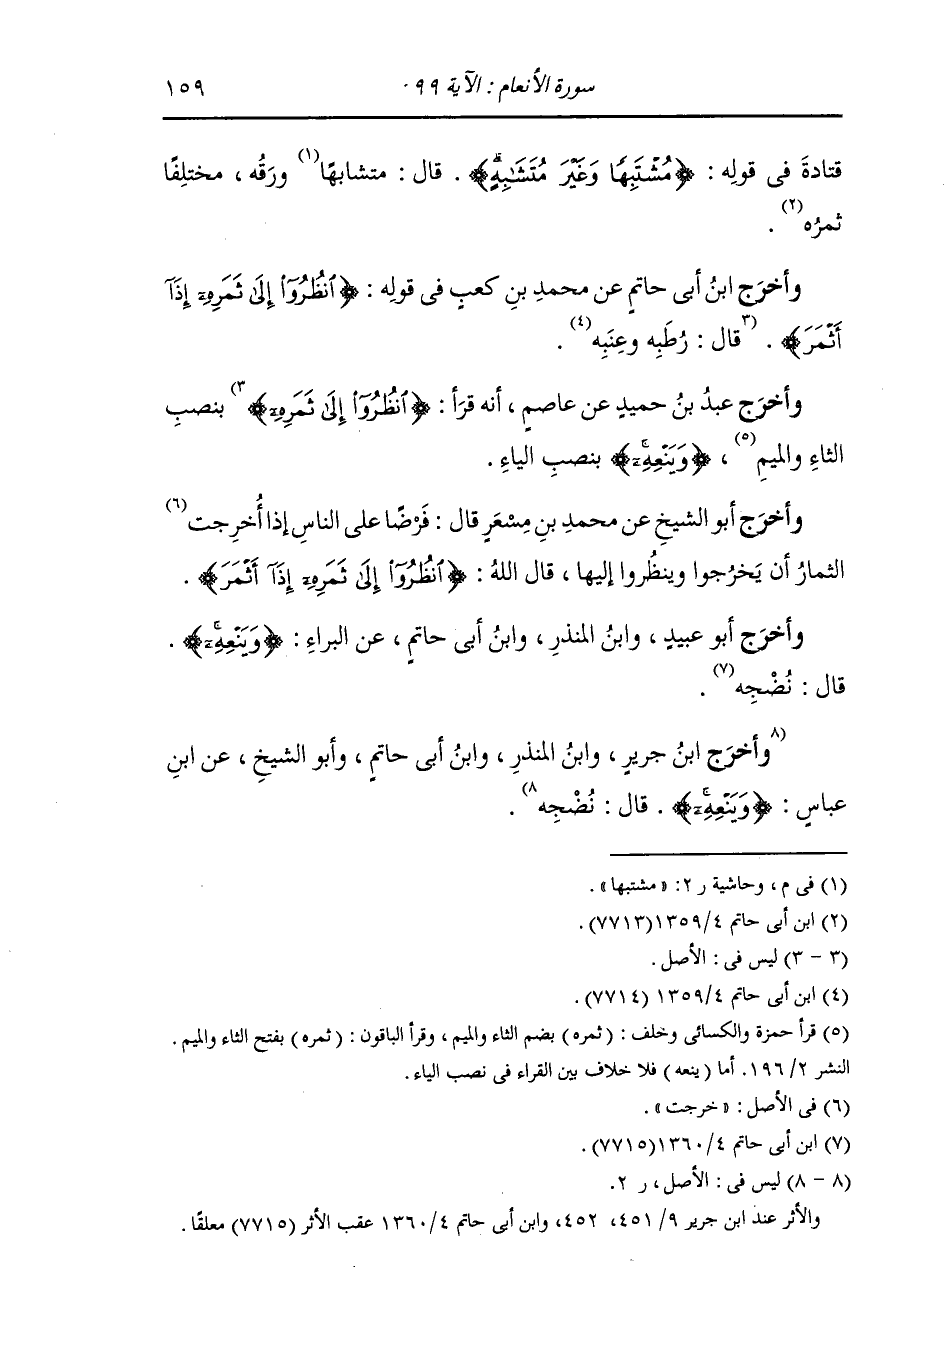 سورة الأنعام : الآية ٩٩ ١٥٩
قتادةَ فى قولِه : ﴿مُشْتَبِهًا وَغَيْرَ مُتَشَٰبِهٍۗ﴾ . قال : متشابهًا(١) ورَقُه ، مختلِفًا
ثمرُه(٢) .
وأخرَج ابنُ أبى حاتمٍ عن محمدِ بنِ كعبٍ فى قولِه : ﴿ٱنظُرُوٓا۟ إِلَىٰ ثَمَرِهِۦٓ إِذَآ
أَثْمَرَ﴾ . (٣قال : رُطَبِه وعِنَبِه(٤) .
وأخرَج عبدُ بنُ حميدٍ عن عاصمٍ ، أنه قرَأ : ﴿ٱنظُرُوٓا۟ إِلَىٰ ثَمَرِهِۦٓ﴾٣) بنصبِ
الثاءِ والميمِ(٥) ، ﴿وَيَنْعِهِۦٓۚ﴾ بنصبِ الياءِ .
وأخرَج أبو الشيخِ عن محمدِ بنِ مِسْعَرٍ قال : فَرْضًا على الناسِ إذا أُخرِجت(٦)
الثمارُ أن يَخرُجوا وينظُروا إليها ، قال اللهُ : ﴿ٱنظُرُوٓا۟ إِلَىٰ ثَمَرِهِۦٓ إِذَآ أَثْمَرَ﴾ .
وأخرَج أبو عبيدٍ ، وابنُ المنذرِ ، وابنُ أبى حاتمٍ ، عن البراءِ : ﴿وَيَنْعِهِۦٓۚ﴾ .
قال : نُضْجِه(٧) .
(٨وأخرَج ابنُ جريرٍ ، وابنُ المنذرِ ، وابنُ أبى حاتمٍ ، وأبو الشيخِ ، عن ابنِ
عباسٍ : ﴿وَيَنْعِهِۦٓۚ﴾ . قال : نُضْجِه٨) .
(١) فى م ، وحاشية ر ٢ : « مشتبها » .
(٢) ابن أبى حاتم ١٣٥٩/٤ (٧٧١٣) .
(٣ - ٣) ليس فى : الأصل .
(٤) ابن أبى حاتم ١٣٥٩/٤ (٧٧١٤) .
(٥) قرأ حمزة والكسائى وخلف : ( ثمره ) بضم الثاء والميم ، وقرأ الباقون : ( ثمره ) بفتح الثاء والميم .
النشر ١٩٦/٢ . أما ( ينعه ) فلا خلاف بين القراء فى نصب الياء .
(٦) فى الأصل : « خرجت » .
(٧) ابن أبى حاتم ١٣٦٠/٤ (٧٧١٥) .
(٨ - ٨) ليس فى : الأصل ، ر ٢ .
والأثر عند ابن جرير ٤٥١/٩ ، ٤٥٢ ، وابن أبى حاتم ١٣٦٠/٤ عقب الأثر (٧٧١٥) معلقًا .